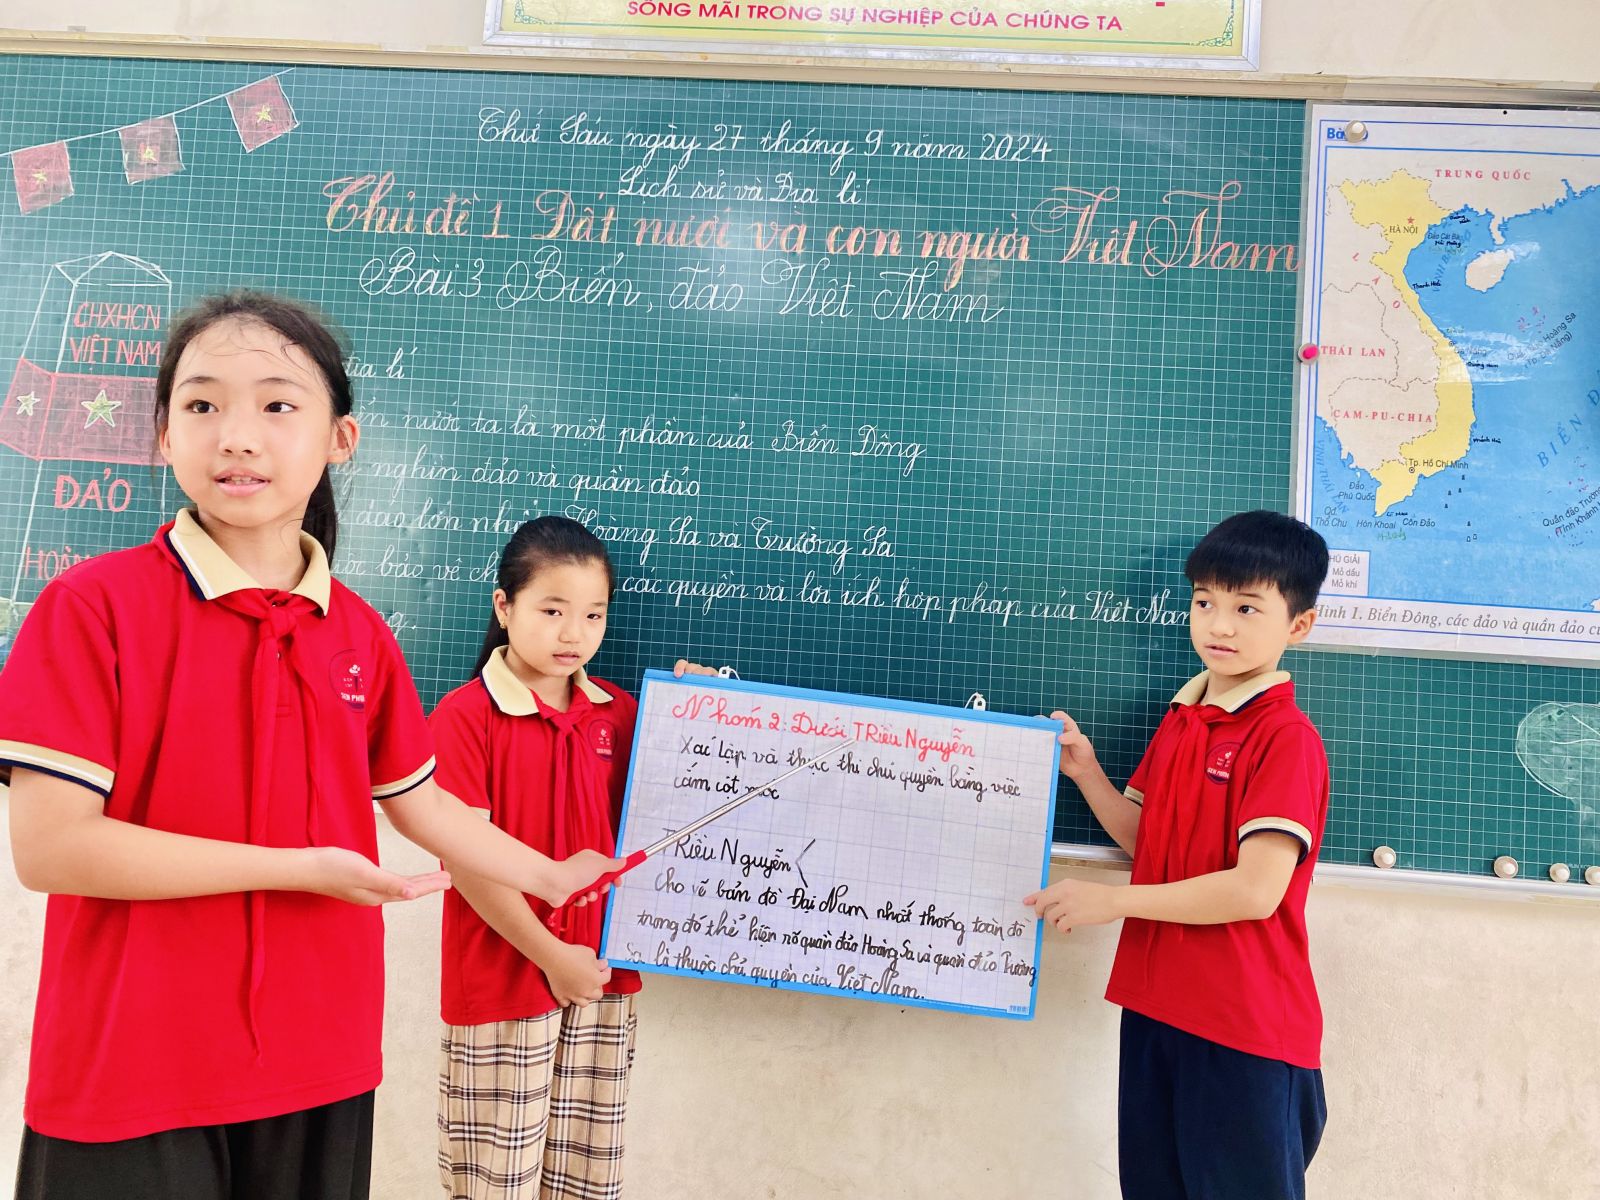 SỐNG MÃI TRONG SỰ NGHIỆP CỦA CHÚNG TA
Thứ Sáu ngày 27 tháng 9 năm 2024
Lịch sử và Địa lí
Chủ đề 1 Đất nước và con người Việt Nam
Bài 3 Biển, đảo Việt Nam
địa lí
nước ta là một phần của Biển Đông
nghìn đảo và quần đảo
đảo lớn Hoàng Sa và Trường Sa
bảo vệ các quyền và lợi ích hợp pháp của Việt Nam
CHXHCN
VIỆT NAM
ĐẢO
Nhóm 2: Dưới TRiều Nguyễn
Xác Lập và thực thi chủ quyền bằng việc
cắm cột mốc
TRiều Nguyễn
Cho vẽ bản đồ Đại Nam nhất thống toàn đồ
trong đó thể hiện rõ quần đảo Hoàng Sa và quần đảo Trường
Sa là thuộc chủ quyền của Việt Nam.
TRUNG QUỐC
HÀ NỘI
LÀO
THÁI LAN
CAM-PU-CHIA
Tp. Hồ Chí Minh
Đảo
Phú Quốc
Qđ.
Thổ Chu
Hòn Khoai
Côn Đảo
Đà Nẵng
Quần đảo Hoàng Sa
(Tp. Đà Nẵng)
BIỂN
Quần đảo Trường
(Tỉnh Khánh
Mỏ dầu
Mỏ khí
Hình 1. Biển Đông, các đảo và quần đảo
SEN PHƯƠ